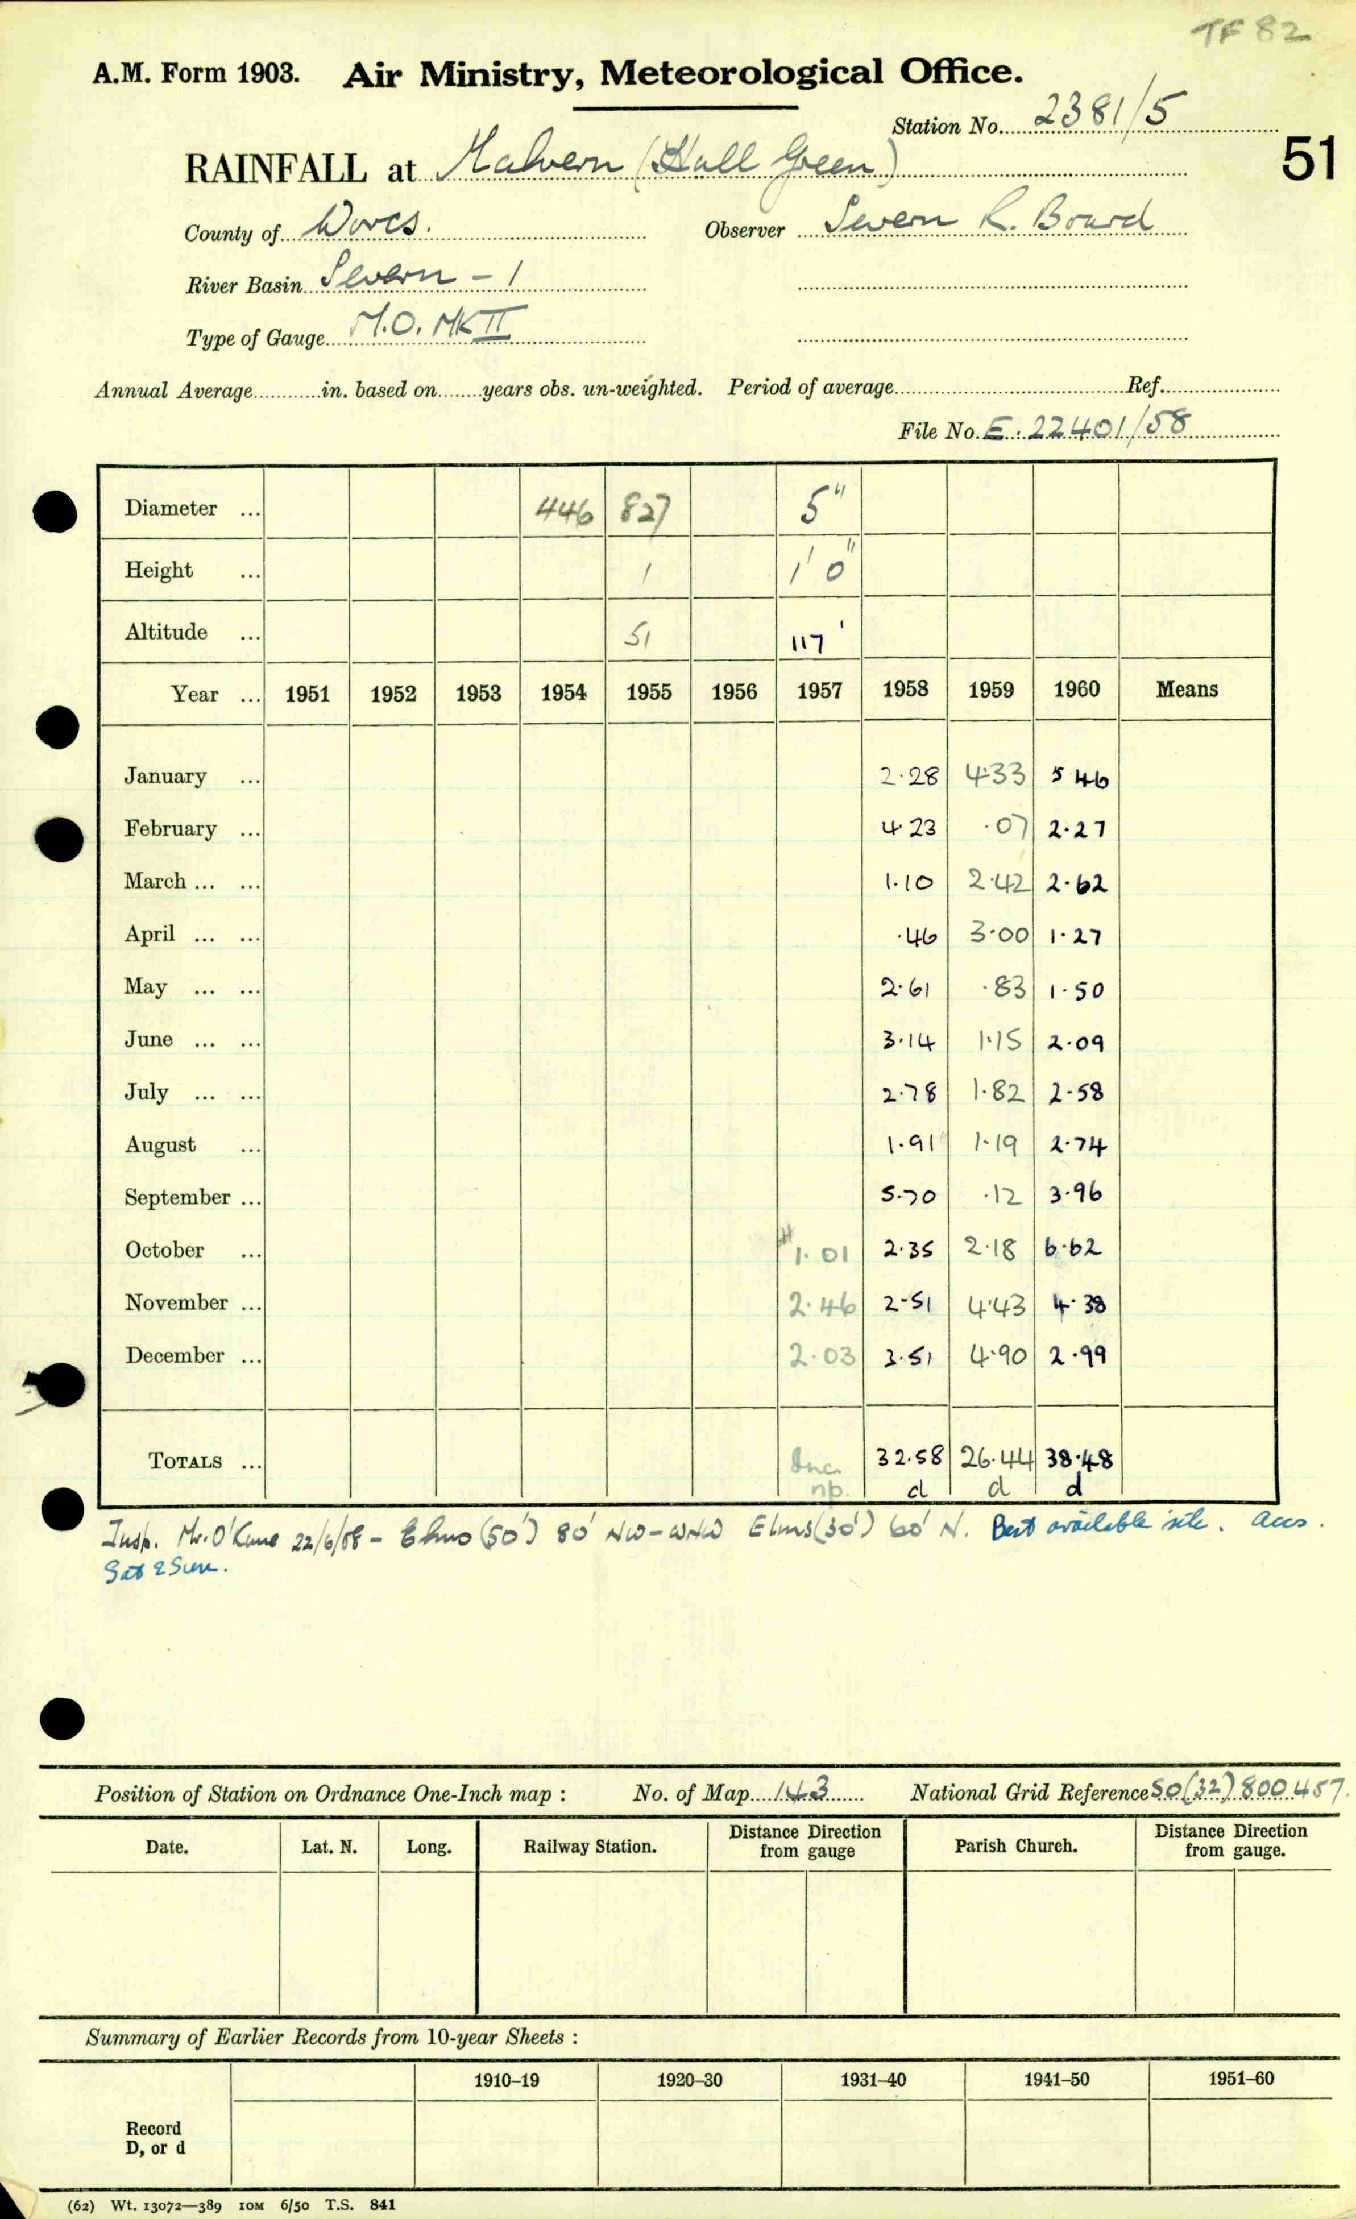 TF 82
A.M. Form 1903. Air Ministry, Meteorological Office.
Station No. 2381/5
51
RAINFALL at Malvern (Hall Green)
County of Worcs. Observer Severn R. Board
River Basin Severn - 1
Type of Gauge M.O. MK II
Annual Average............in. based on........years obs. un-weighted. Period of average............ Ref............
File No. E. 22401/58
Diameter ... 446 827 5"
Height ... 1 1' 0"
Altitude ... 51 117'
Year ... 1951 1952 1953 1954 1955 1956 1957 1958 1959 1960 Means
January ... 2.28 4.33 5 46
February ... 4 23 .07 2.27
March ... ... 1.10 2.42 2.62
April ... ... .46 3.00 1.27
May ... ... 2.61 .83 1.50
June ... ... 3.14 1.15 2.09
July ... ... 2.78 1.82 2.58
August ... 1.91 1.19 2.74
September ... 5.70 .12 3.96
October ... 1.01 2.35 2.18 6.62
November ... 2.46 2.51 4.43 4.38
December ... 2.03 3.51 4.90 2.99
TOTALS ... Inc. 32.58 26.44 38.48
np. d d d
Insp. Mr. O'Kane 22/6/58 - Elms (50') 80' NW-WNW Elms (30') 60' N. Best available site. Accs.
Sat & Sun.
Position of Station on Ordnance One-Inch map : No. of Map 143 National Grid Reference SO(32) 800457
Date. Lat. N. Long. Railway Station. Distance Direction from gauge Parish Church. Distance Direction from gauge.
Summary of Earlier Records from 10-year Sheets :
1910-19 1920-30 1931-40 1941-50 1951-60
Record
D, or d
(62) Wt. 13072—389 10M 6/50 T.S. 841